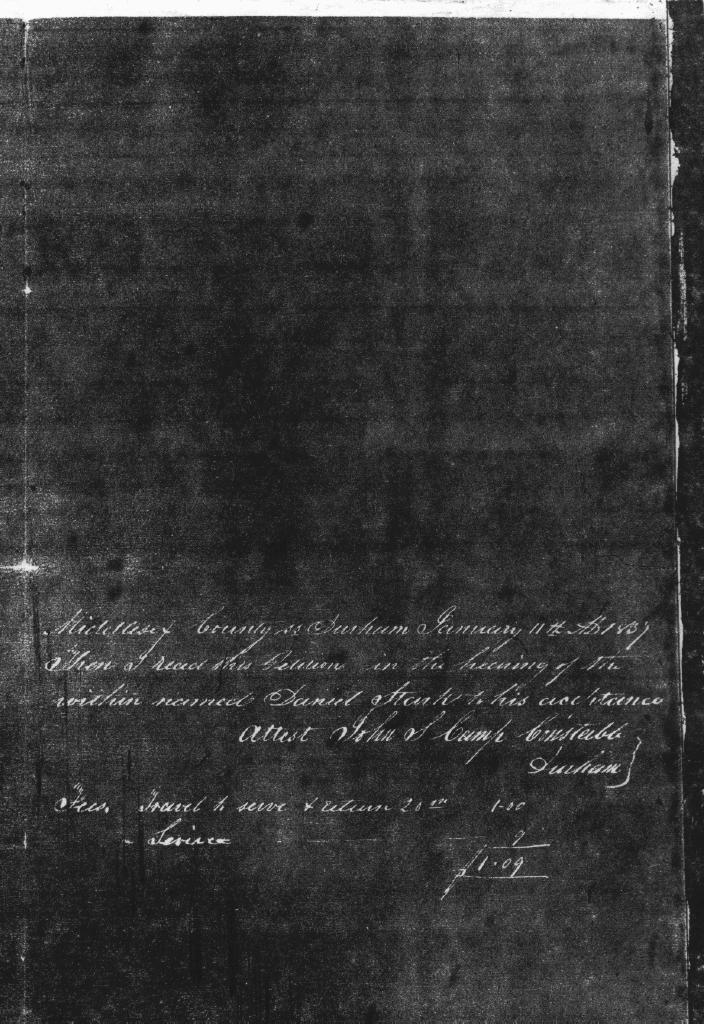 Middlesex County ss Durham January 11th AD 1837
Then I read this Petition in the hearing of the
within named Daniel Stark to his acceptance
Attest John S Camp Constable
Durham }
Fees. Travel to serve & return 20 m 1.00
" Service 9
$1.09